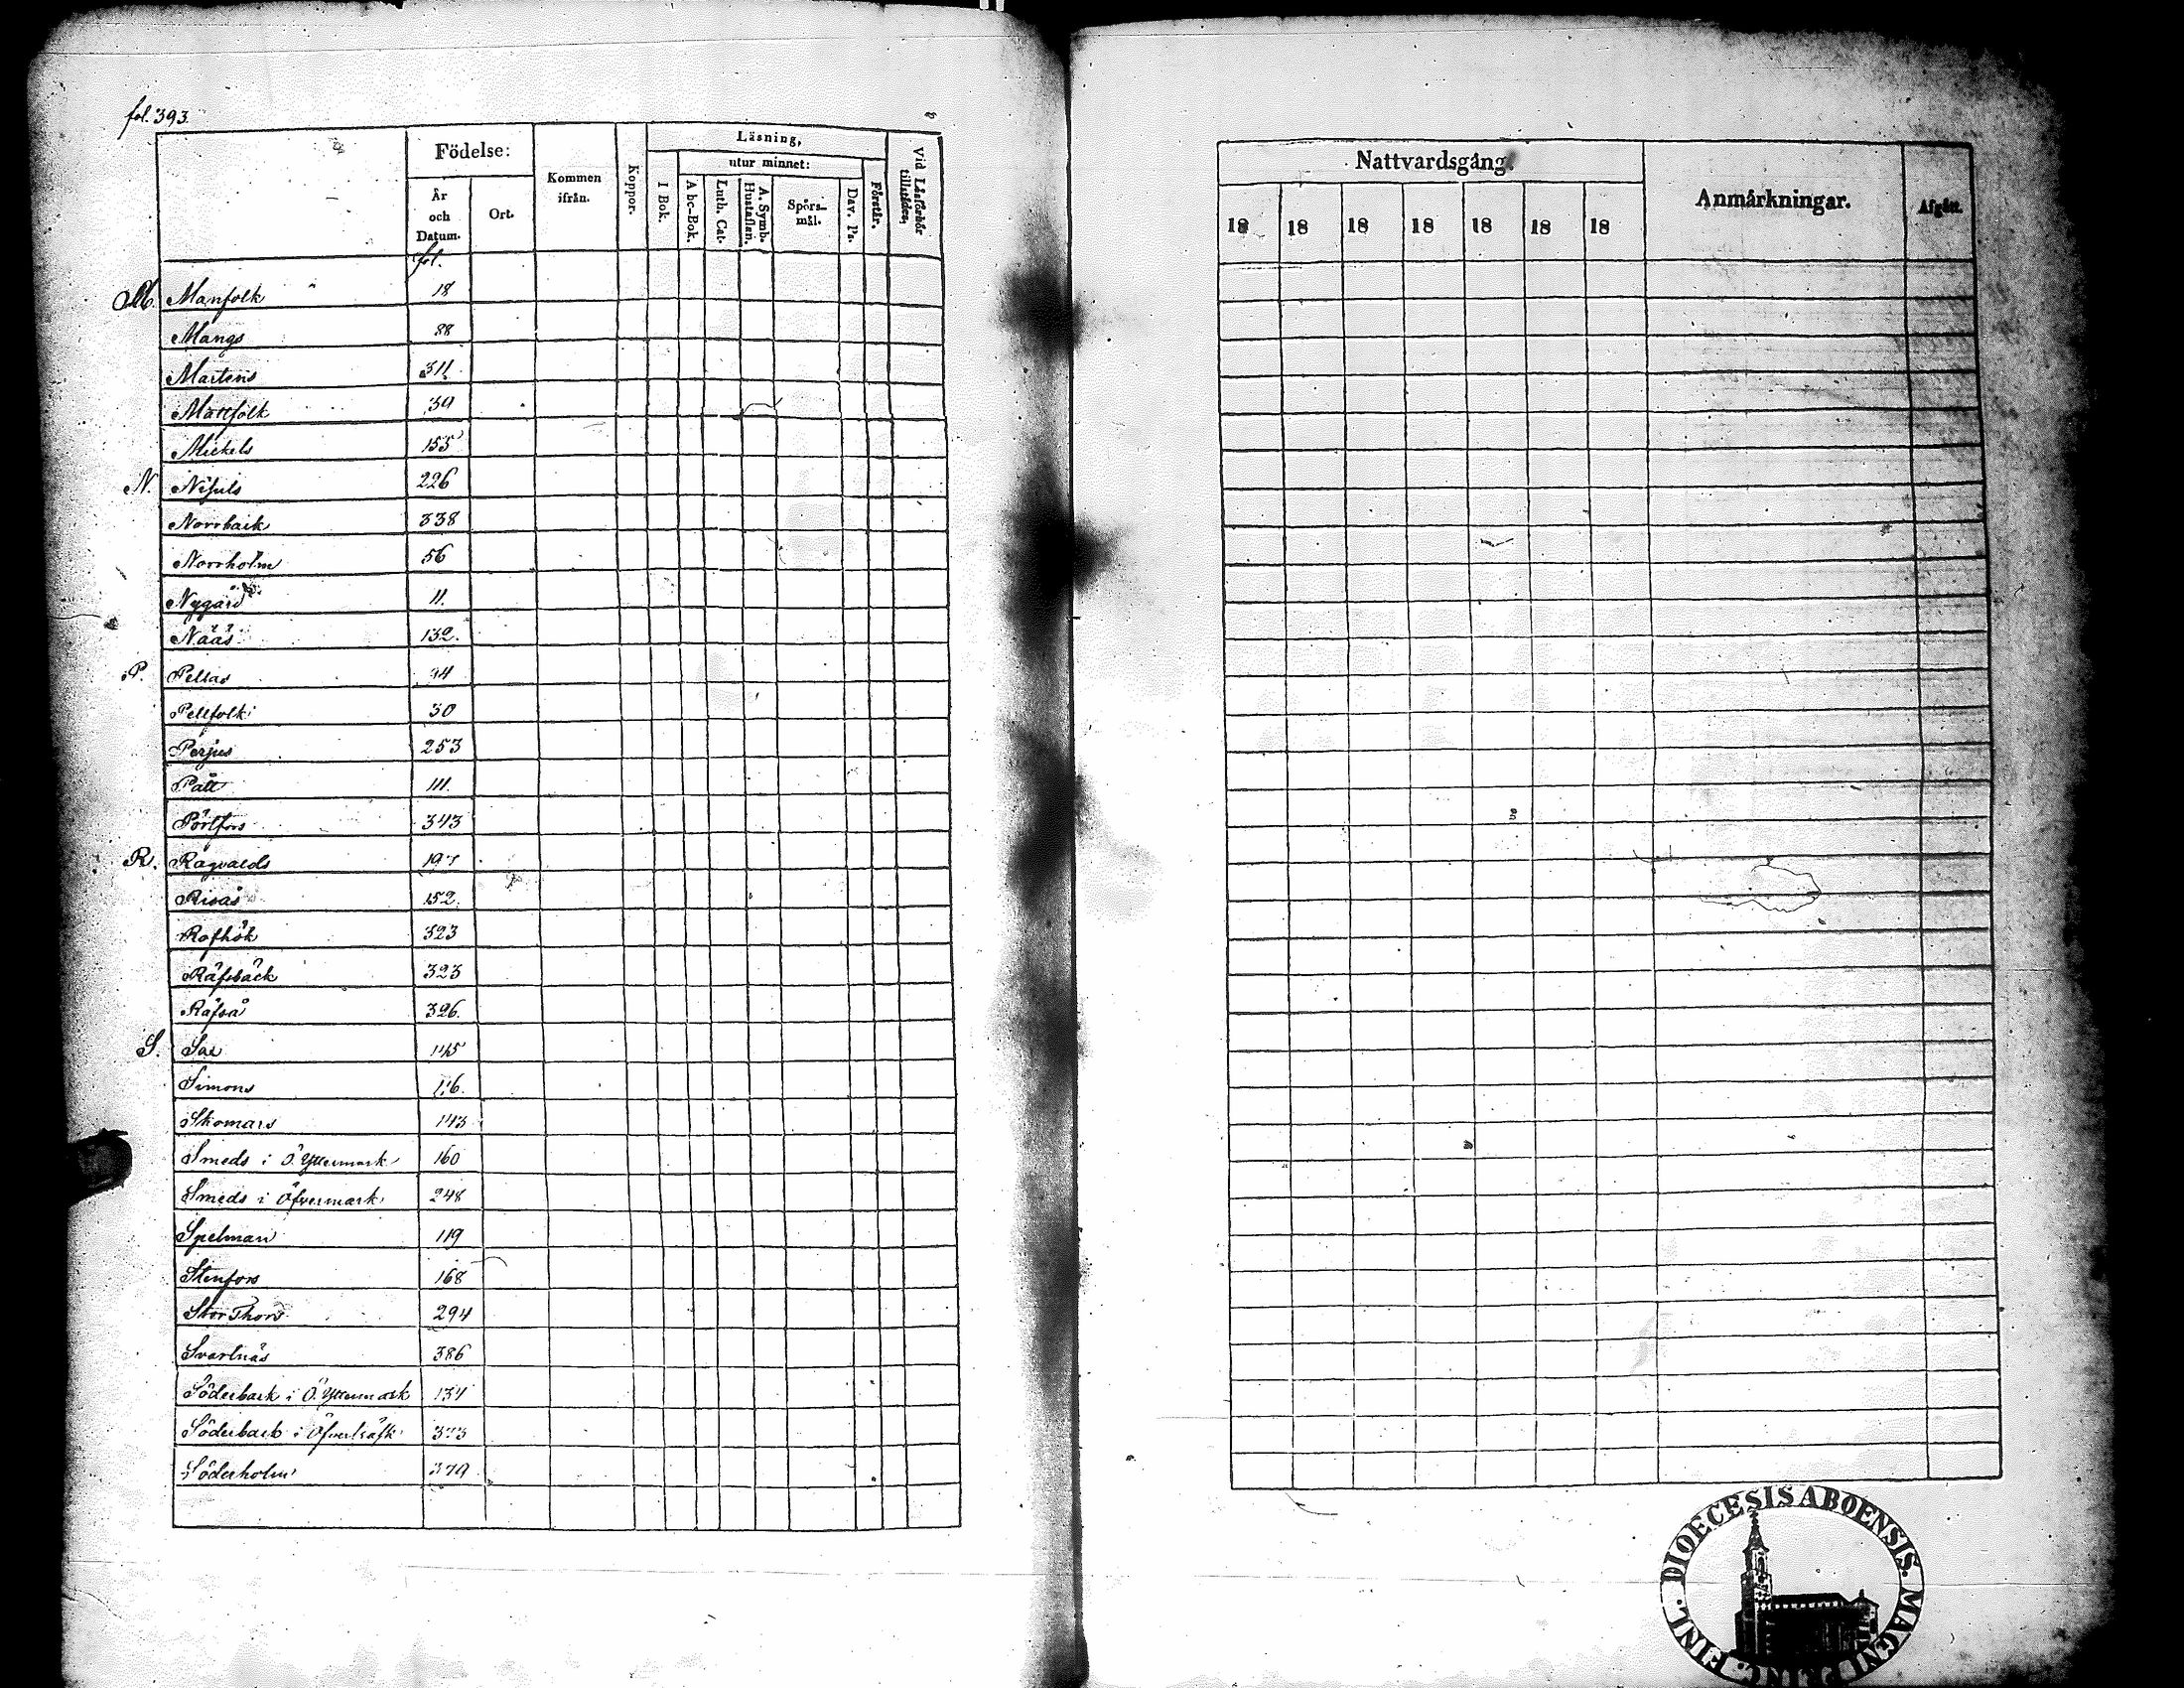 fol. 393.
Födelse:
År och Datum.
Ort.
Kommen ifrån.
Koppor.
Läsning,
utur minnet:
I Bok.
Abc-Bok.
Luth. Cat.
A. Symb. Hustaflan.
Spörs-mål.
Dav. Ps.
Förstår.
Vid Läsförhör tillstädes.
fol.
M. Manfolk 18
Mangs 88
Martens 311.
Mattfolk 39
Mickels 155
N. Nisuls 226
Norrback 338
Norrholm 56
Nygård 11.
Nääs 132.
P. Pellas
Pellfolk 30
Perjus 253
Pått 111.
Pörtfors 343
R. Ragvalds
Risås 152.
Rofhök 323
Räfsbäck 323
Räfså 326.
S. 145
Simons
Skomars 143
Smeds i Ö. Yttermark 160
Smeds i Öfvermark 248
Spelman 119
Stenfors 168
Stor Thors 294
Svartnäs 386
Söderback i Ö. Yttermark 134
Söderback i Öfverträsk
Söderholm 379
Nattvardsgång.
18 18 18 18 18 18 18
Anmärkningar.
Afgått.
DIOECESIS ABOENSIS. MAGNI PRINC. FINL.